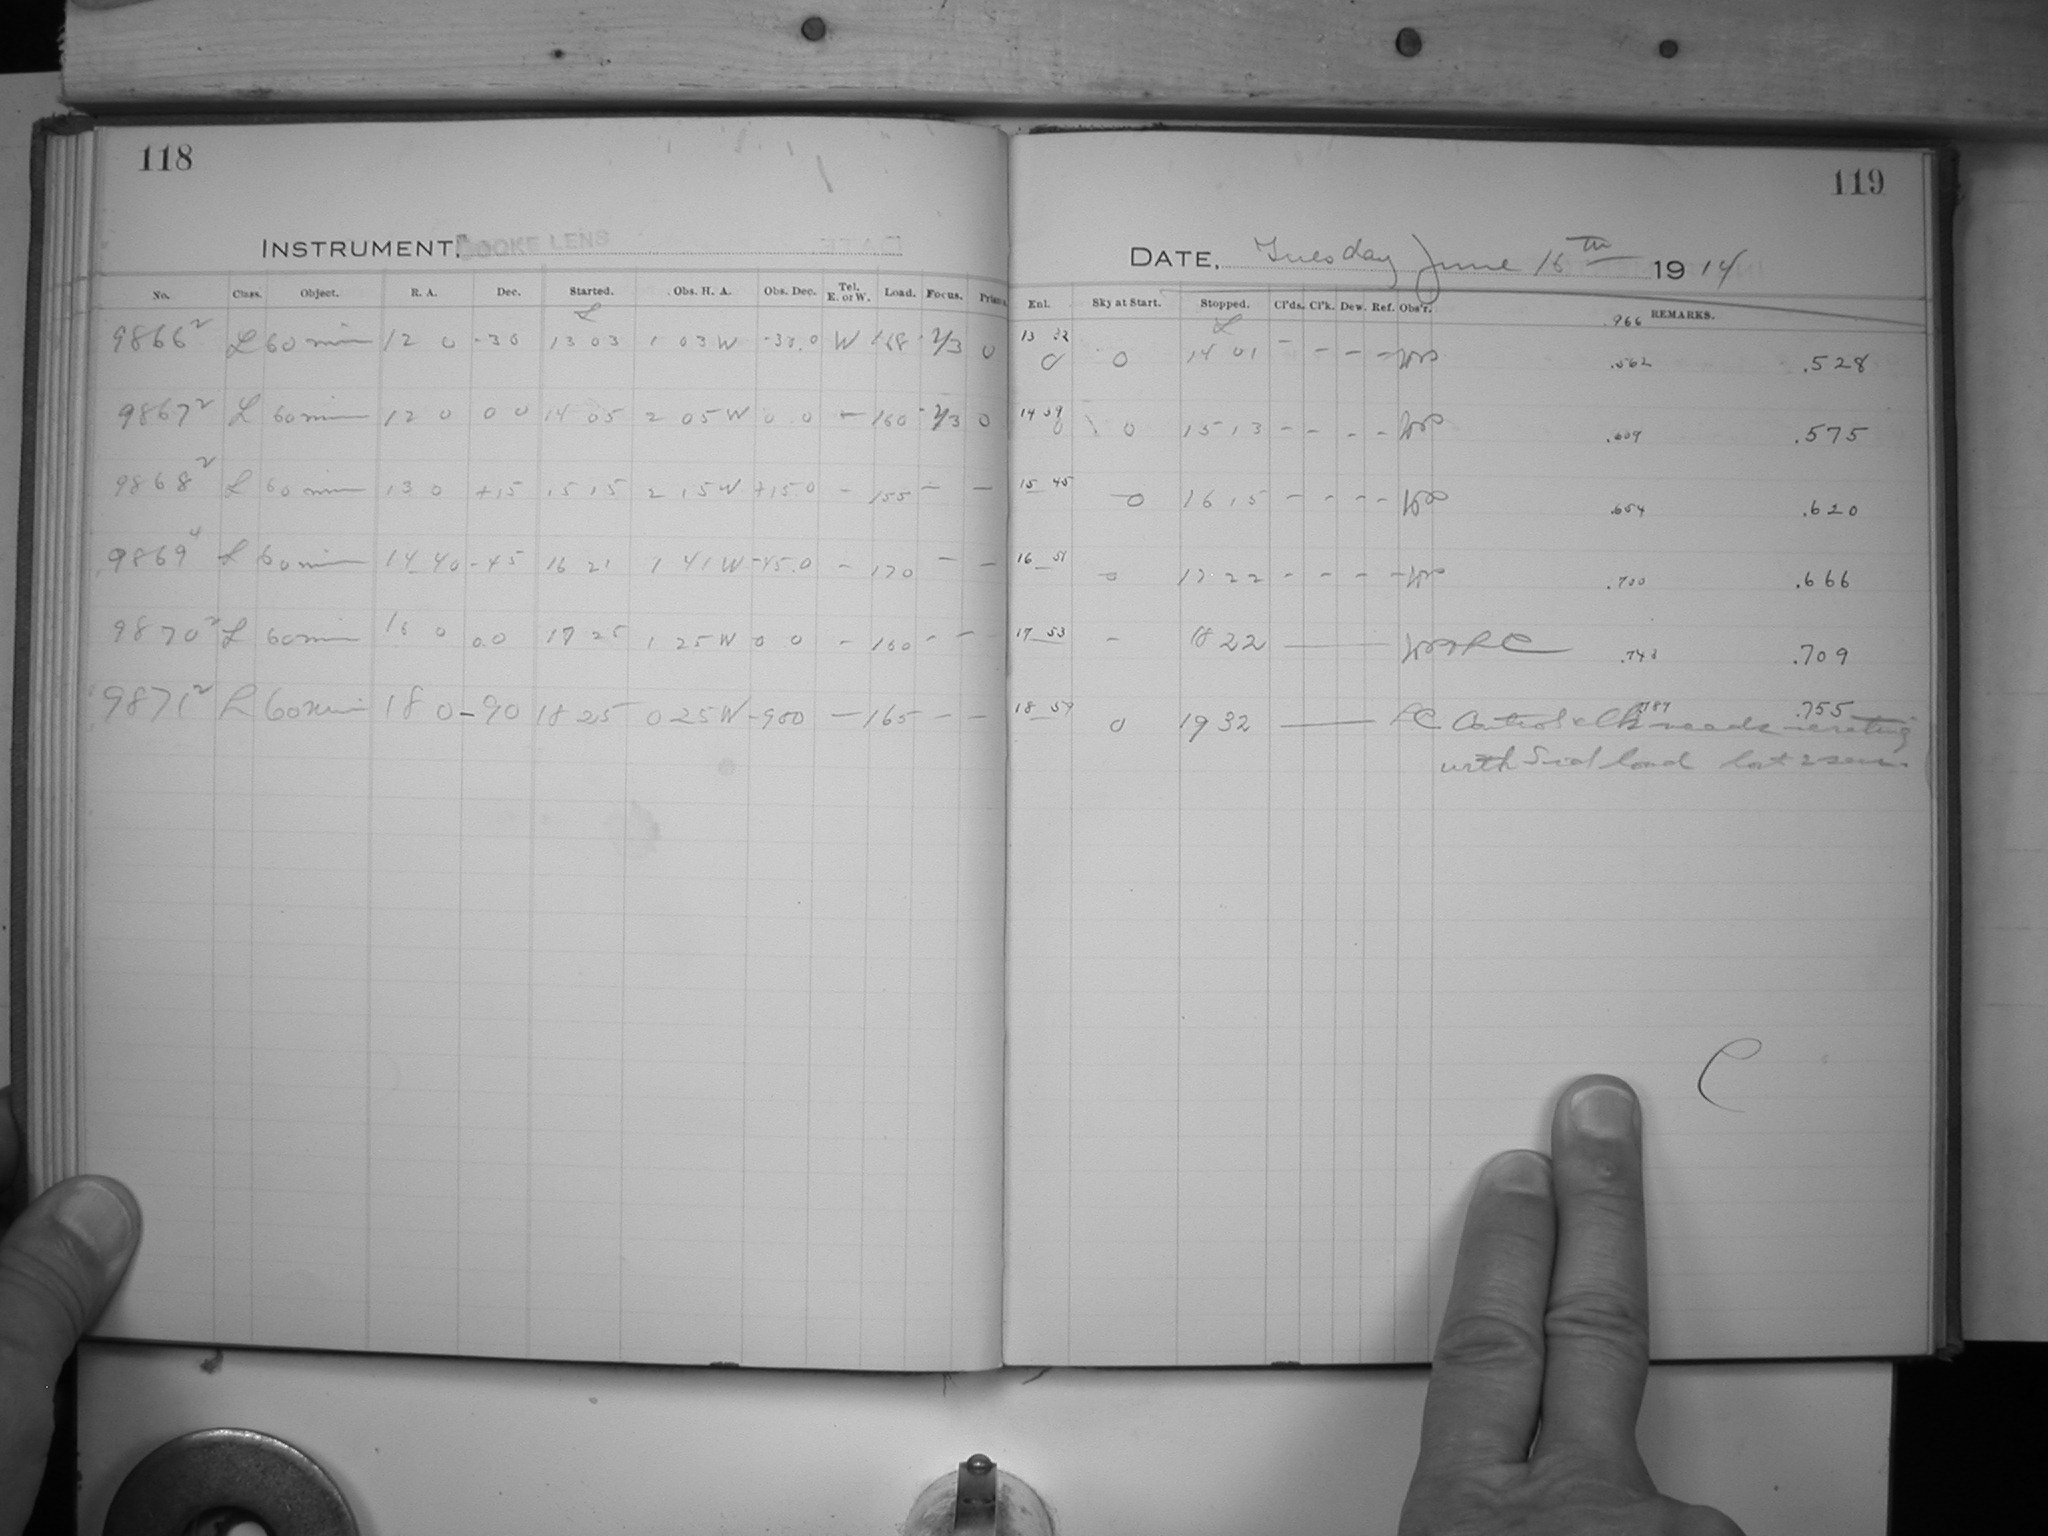 118
INSTRUMENT, COOKE LENS
No. Class. Object. R. A. Dec. Started. Obs. H. A. Obs. Dec. Tel. E. or W. Load. Focus. Prism.
9866² L 60 min 12 0 -30 13 03 1 03 W -30.0 W 168 0
9867² L 60 min 12 0 0 0 14 05 2 05 W 0.0 - 160 0
9868² L 60 min 13 0 +15 15 15 2 15 W +15.0 - 155 - -
9869 L 60 min 14 40 -45 16 21 1 41 W -45.0 - 170 - -
9870² L 60 min 16 0 0.0 17 25 1 25 W 0 0 - 160 - -
9871² L 60 min 18 0 -90 18 25 0 25 W -90 0 - 165 - -
119
DATE, Tuesday June 16th 1914
Enl. Sky at Start. Stopped. Cl'ds. Cl'k. Dew. Ref. Obs'r. REMARKS.
13 32 0 0 14 01 - - - - .562 .528
14 39 0 0 15 13 - - - - .609 .575
15 45 0 16 15 - - - - .654 .620
16 51 0 17 22 - - - - .700 .666
17 53 - 18 22 .743 .709
18 59 0 19 32 .789 .755
with load last